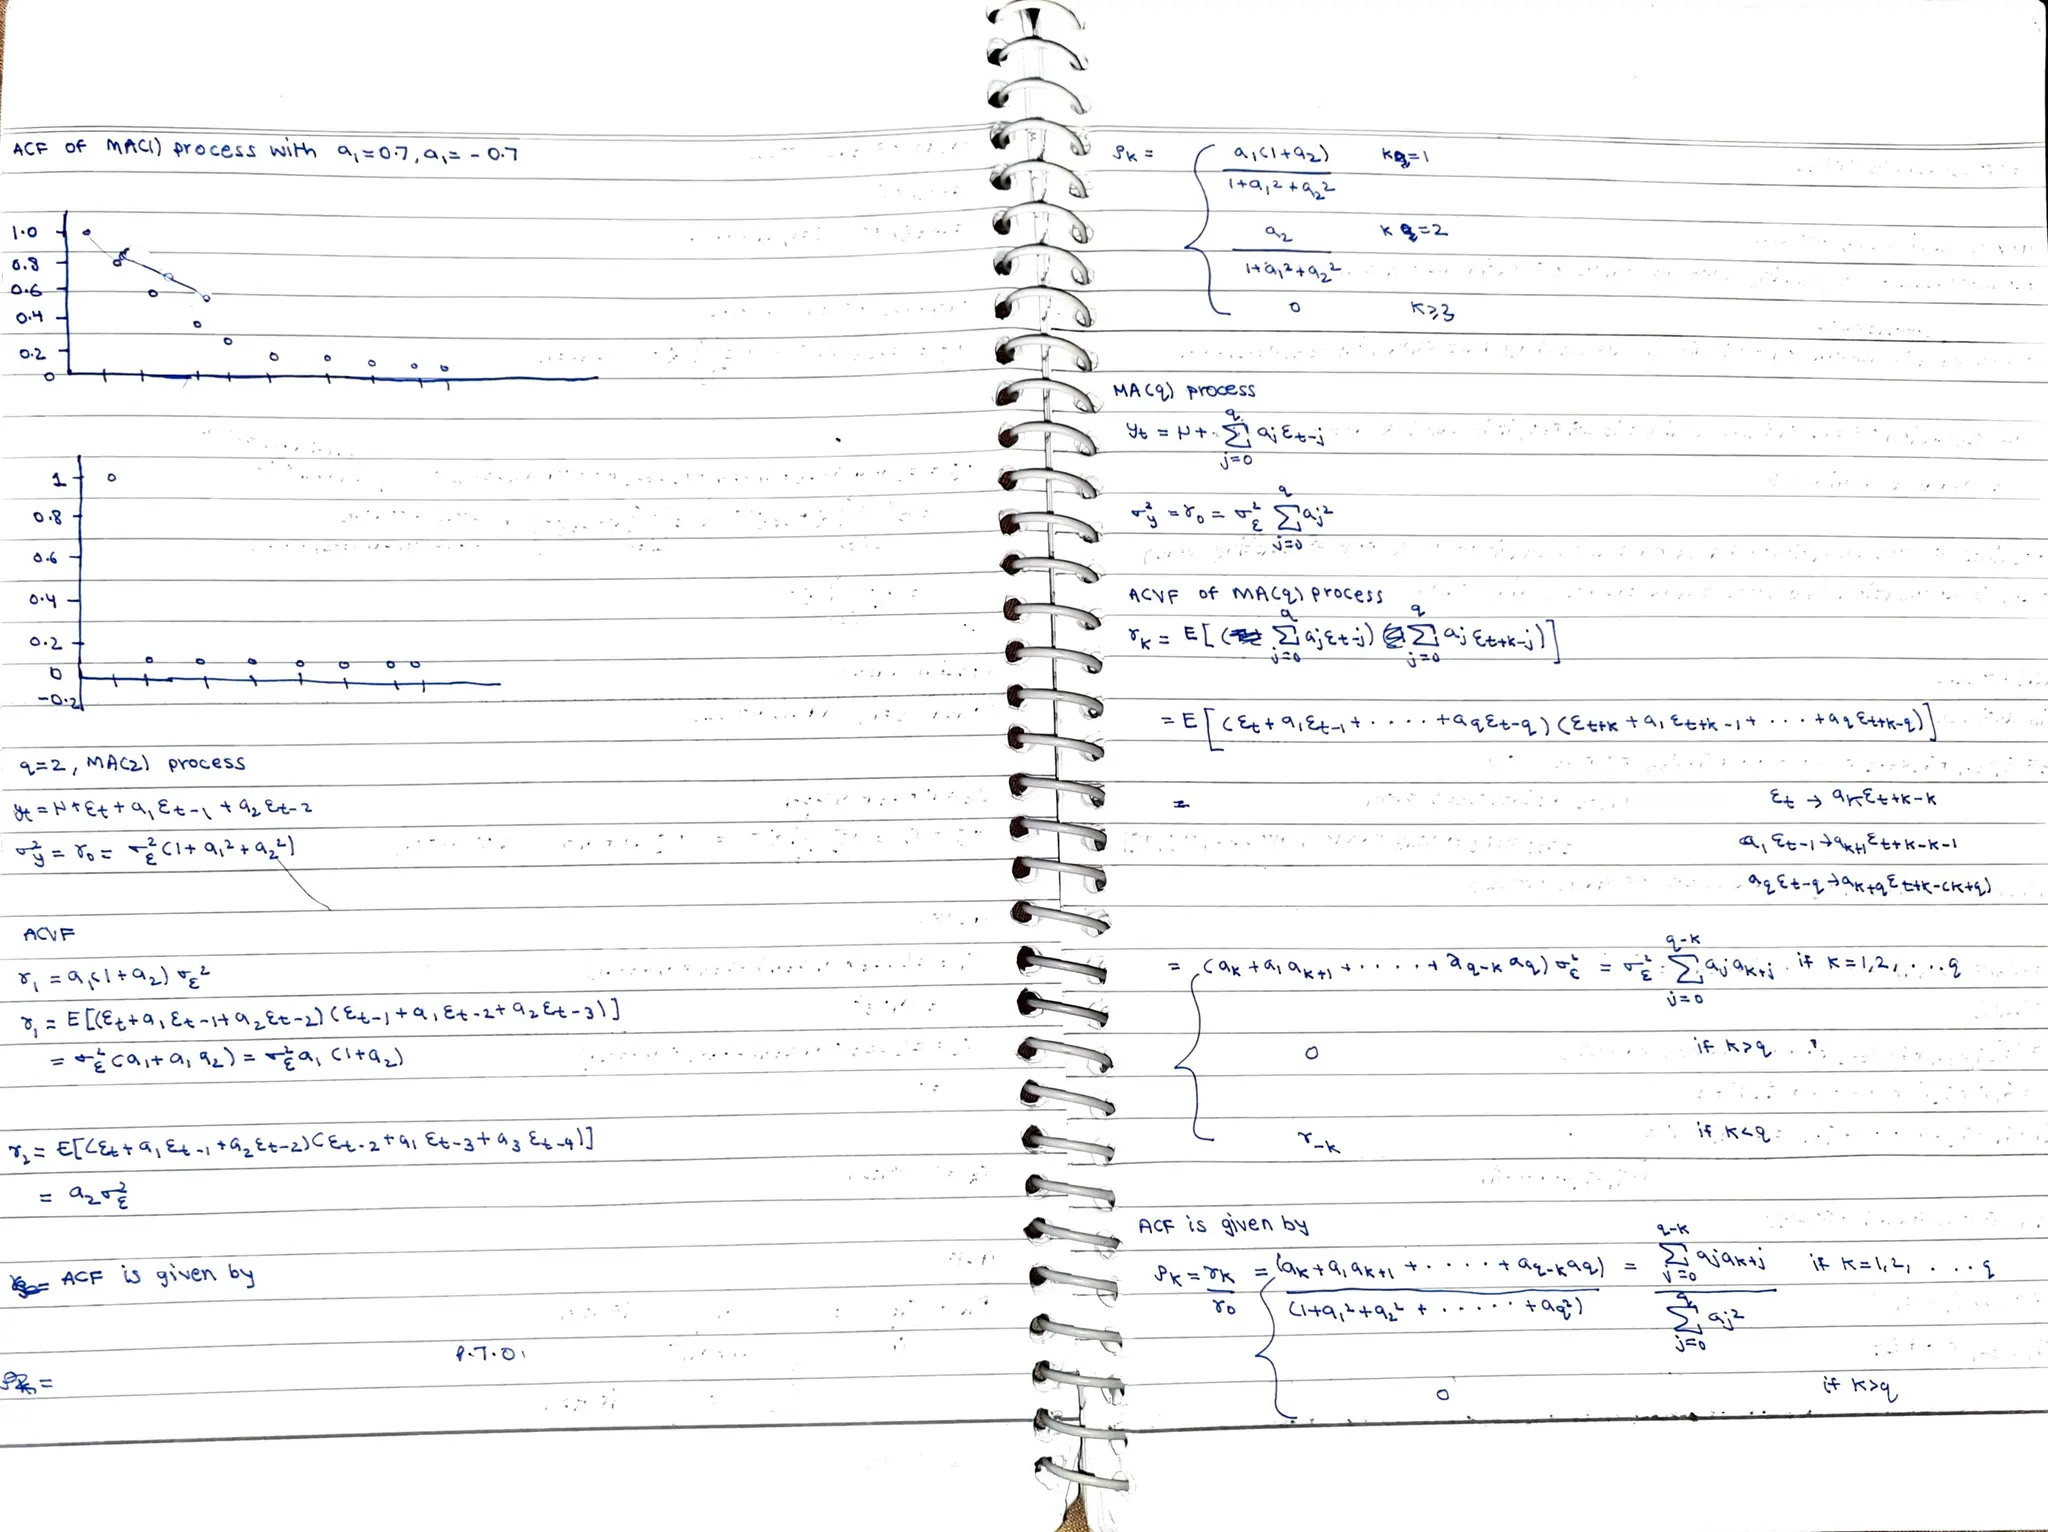 ACF of MA(1) process with a₁=0.7, a₁= -0.7
1.0
0.8
0.6
0.4
0.2
0
1
0.8
0.6
0.4
0.2
0
-0.2
q=2, MA(2) process
yt = μ+εt + a₁ εt-1 + a₂ εt-2
σ²y = γ₀ = σ²ε (1+ a₁² + a₂²)
ACVF
γ₁ = a₁(1+a₂) σε²
γ₁ = E[(εt+a₁ εt-1+a₂εt-2) (εt-1 +a₁ εt-2+ a₂ εt-3)]
= σ²ε (a₁+ a₁ a₂) = σ²ε a₁ (1+a₂)
γ₂ = E[(εt + a₁ εt-1 +a₂ εt-2)(εt-2 +a₁ εt-3 + a₃ εt-4)]
= a₂ σ²ε
ACF is given by
P.T.O.
ρk =
a₁(1+a₂) / 1+a₁²+a₂² k=1
a₂ / 1+a₁²+a₂² k=2
0 k≥3
MA(q) process
yt = μ + Σ_{j=0}^{q} aj εt-j
σ²y = γ₀ = σ²ε Σ_{j=0}^{q} aj²
ACVF of MA(q) process
γk = E[( Σ_{j=0}^{q} aj εt-j) ( Σ_{j=0}^{q} aj εt+k-j)]
= E[(εt + a₁ εt-1 + .... + aq εt-q) (εt+k + a₁ εt+k-1 + ... + aq εt+k-q)]
= εt → ak εt+k-k
a₁ εt-1 → ak+1 εt+k-k-1
aq εt-q → ak+q εt+k-(k+q)
= (ak + a₁ ak+1 + .... + aq-k aq) σ²ε = σ²ε Σ_{j=0}^{q-k} aj ak+j if k=1,2,...q
0 if k>q
γ-k if k<q
ACF is given by
ρk = γk / γ₀ = (ak + a₁ ak+1 + ..... + aq-k aq) / (1+a₁²+a₂² + ..... + aq²) = Σ_{j=0}^{q-k} aj ak+j / Σ_{j=0}^{q} aj² if k=1,2, ...q
0 if k>q